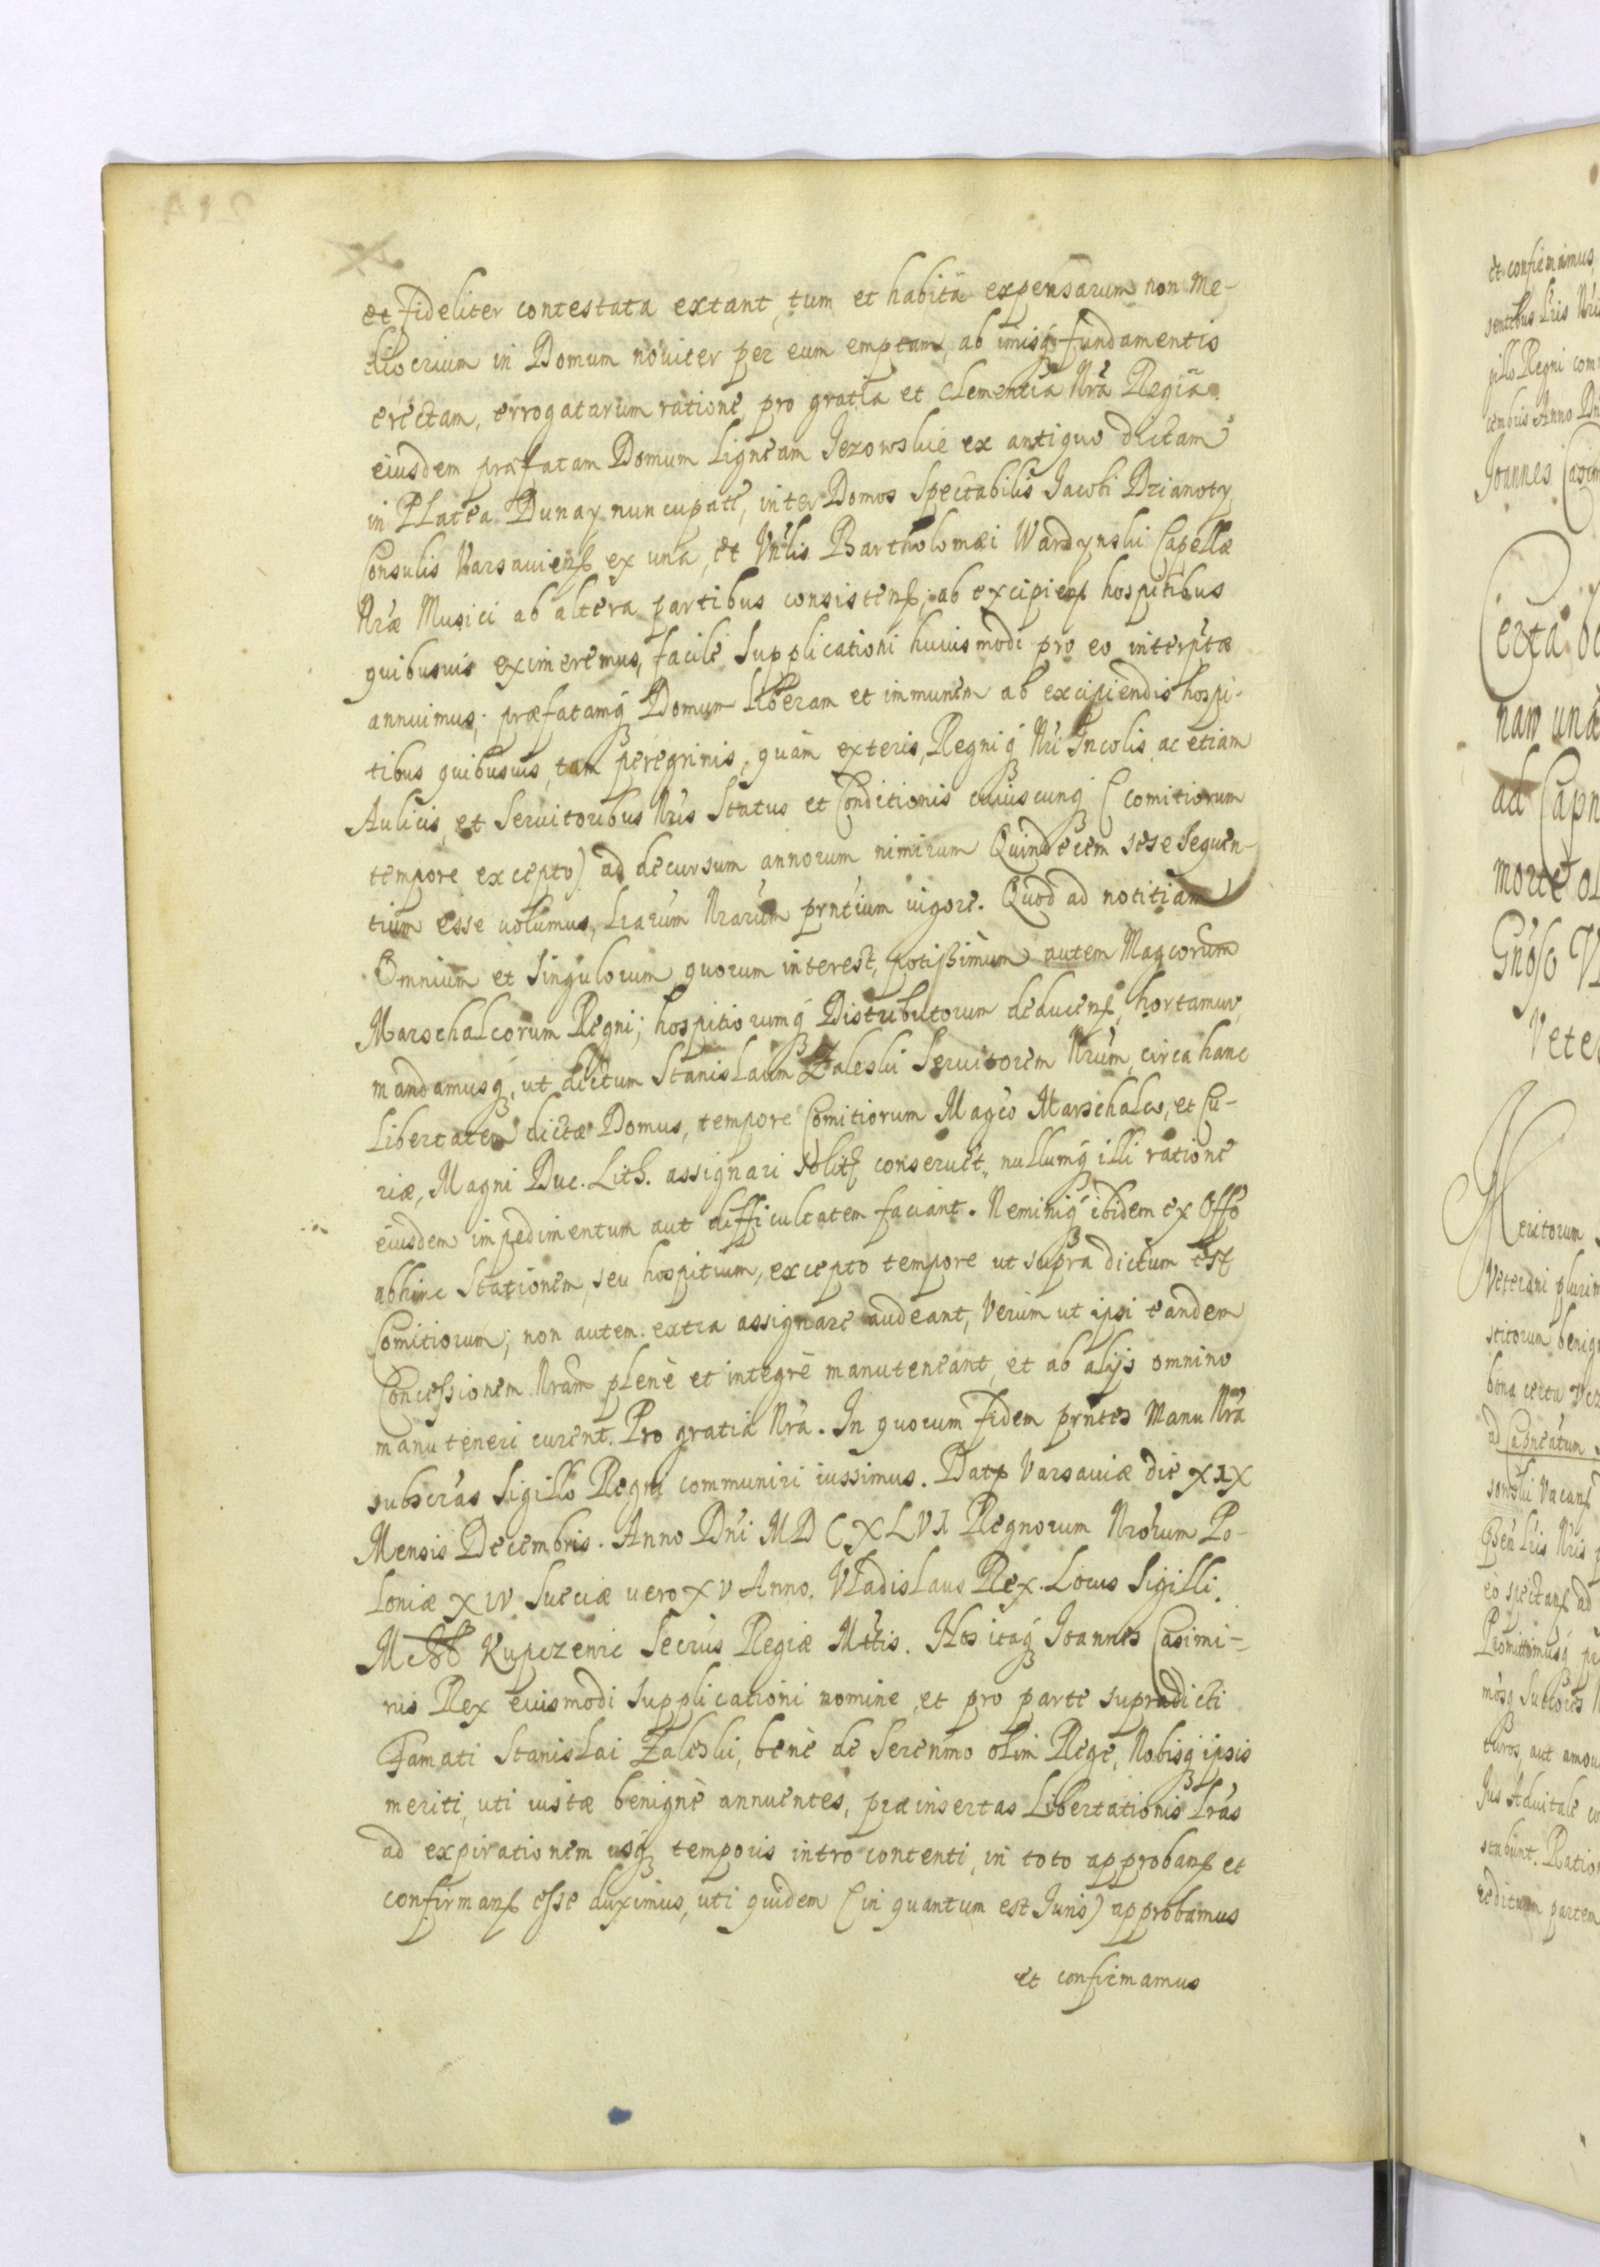 et fideliter contestata extant, tum et habitâ expensarum non me-
diocrium in Domum noviter per eum emptam, ab imisq fundamentis
erectam, errogatarum ratione, pro gratia et clementia Nrâ Regiâ
eiusdem præfatam Domum Ligneam Jezowskie ex antiquo dictam
in Platea Dunay nuncupatê, inter Domos Spectabilis Jacobi Dzianoty
Consulis Varsaviens ex una, et Vnlis Bartholomæi Wardynski Capellæ
Nræ Musici ab altera partibus consistens, ab excipiens hospitibus
quibusvis eximeremus, facile Supplicationi huiusmodi pro eo interpitæ
annuimus; præfatamq Domum liberam et immunem ab excipiendis hospi-
tibus quibusvis, tam peregrinis, quàm exteris, Regniq Nri Incolis, ac etiam
Aulicis, et Servitoribus Nris Status et Conditionis cuiuscunq (comitiorum
tempore excepto) ad decursum annorum nimirum Quindecem sese sequen-
tium esse volumus, Lrarum Nrarum prntium vigore. Quod ad notitiam
Omnium et Singulorum quorum interest, potissimùm autem Magcorum
Marschalcorum Regni; hospitiorumq Distributorum deducens, hortamur,
mandamusq, ut dictum Stanislaum Zaleski Servitorem Nrum, circa hanc
Libertatem dictæ Domus, tempore Comitiorum Magco Marschalco, et Cu-
riæ, Magni Duc. Lith. assignari solitæ conservet, nullumq illi ratione
eiusdem impedimentum aut difficultatem faciant. Neminiq ibidem ex Offo
abhinc Stationem, seu hospitium, excepto tempore ut supra dictum est
Comitiorum; non autem extra assignare audeant, Verùm ut ipsi eandem
Concessionem Nram plenè et integrè manuteneant, et ab alijs omnino
manuteneri curent. Pro gratiâ Nrâ. In quorum fidem prntes Manu Nrâ
subscras Sigillo Regni communiri iussimus. Dat Varsaviæ die XIX
Mensis Decembris. Anno Dni MDCXLVI Regnorum Nrorum Po-
loniæ XIV Sueciæ vero XV Anno. Vladislaus Rex. Locus Sigilli.
Kupczewic Secrius Regiæ Mttis. Nos itaq Joannes Casimi-
rus Rex euismodi Supplicationi nomine, et pro parte supradicti
Famati Stanislai Zaleski, bene de Serenmo olim Rege, Nobisq ipsis
meriti, uti iustæ benignè annuentes, præinsertas Libertationis Lras
ad expirationem usq temporis intro contenti, in toto approbans et
confirmans esse duximus, uti quidem (in quantum est Juris) approbamus
et confirmamus
et confirmamus,
sentibus Lris Nris
gillo Regni com
cembris Anno Dni
Joannes Casim
Certa bo
naw una
ad Capn
morte ol
Gnoso V
Vete
Meritorum
Veterani plurim
stitorum benig
bona certa
ad Capneatum
sowski Vacans
Psen Lris Nris p
eò spectans ad
Promittimusq
mosq Succes
turos, aut amov
Jus Advitale co
stabunt. Ration
reditum partem